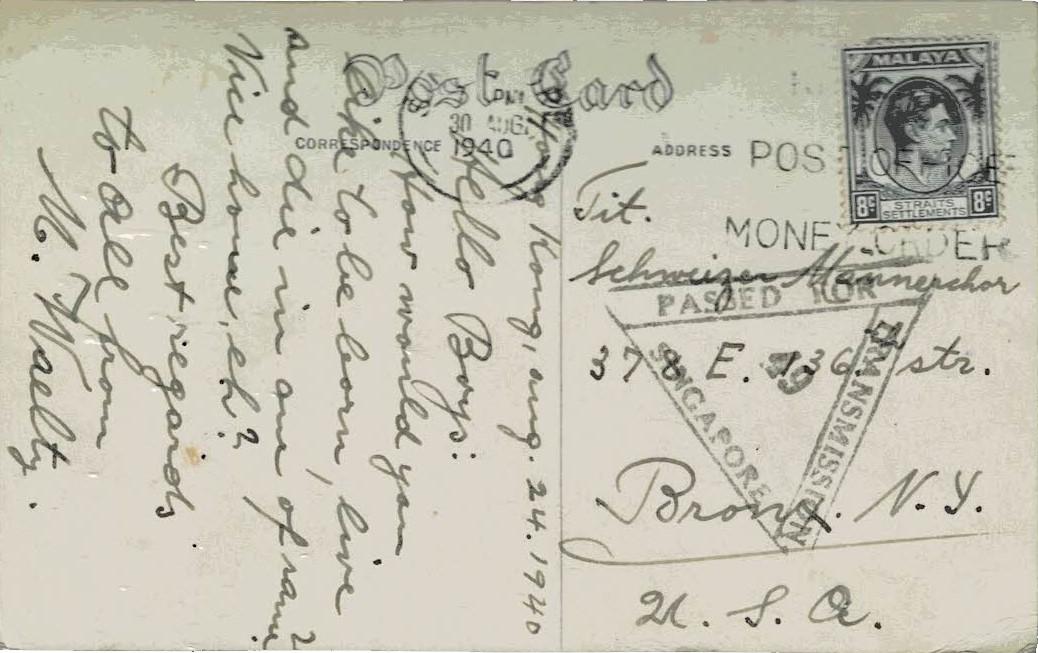 Post Card
CORRESPONDENCE
ADDRESS
30 AUG
1940
POST OFFICE
MONEY ORDER
MALAYA
8c
STRAITS
SETTLEMENTS
8c
PASSED FOR
TRANSMISSION
SINGAPORE
Hong Kong, aug. 24. 1940
Hello Boys:
How would you
like to be born, live
and die in one of
Nice home, eh?
Best regards
to all from
M. Waelty.
Tit.
Schweizer Männerchor
378 E. 136 str.
Bronx. N.Y.
U. S. A.